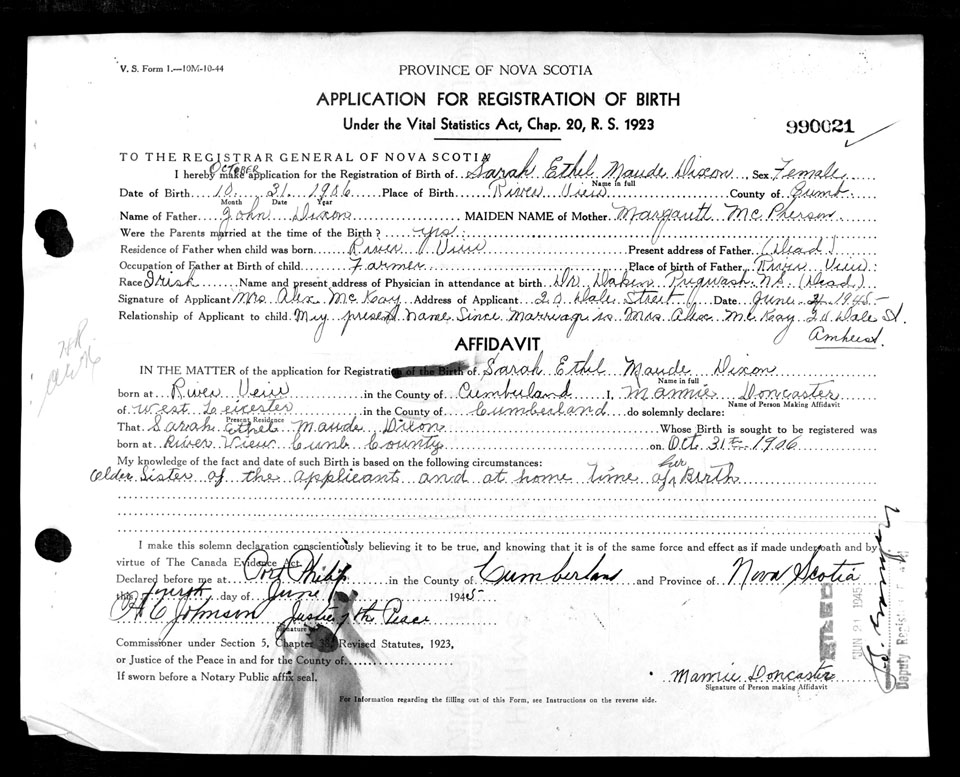 V. S. Form 1.—10M-10-44
PROVINCE OF NOVA SCOTIA
APPLICATION FOR REGISTRATION OF BIRTH
Under the Vital Statistics Act, Chap. 20, R. S. 1923
990021
TO THE REGISTRAR GENERAL OF NOVA SCOTIA
OCTOBER
I hereby make application for the Registration of Birth of Sarah Ethel Maude Dixon Sex Female
Name in full
Date of Birth 10 31 1906 Place of Birth River View County of Cumb
Month Date Year
Name of Father John Dixon MAIDEN NAME of Mother Margarett McPherson
Were the Parents married at the time of the Birth? yes
Residence of Father when child was born River View Present address of Father (Dead)
Occupation of Father at Birth of child Farmer Place of birth of Father River View
Race Irish Name and present address of Physician in attendance at birth Dr Dakin Pugwash N.S. (Dead)
Signature of Applicant Mrs. Alex McKay Address of Applicant 20 Dale Street Date June 1945
Relationship of Applicant to child My present Name Since Marriage is Mrs Alex McKay 20 Dale St.
Amherst.
AFFIDAVIT
IN THE MATTER of the application for Registration of the Birth of Sarah Ethel Maude Dixon
Name in full
born at River View in the County of Cumberland I, Mamie Doncaster
Name of Person Making Affidavit
of West Leicester in the County of Cumberland do solemnly declare:
Present Residence
That Sarah Ethel Maude Dixon Whose Birth is sought to be registered was
born at River View Cumb County on Oct. 31st 1906
My knowledge of the fact and date of such Birth is based on the following circumstances:
her
Older Sister of the applicant and at home time of Birth
I make this solemn declaration conscientiously believing it to be true, and knowing that it is of the same force and effect as if made under oath and by
virtue of The Canada Evidence Act.
Declared before me at Port Philip in the County of Cumberland and Province of Nova Scotia
this fourth day of June 1945
A C Johnson Justice of the Peace
Signature
Commissioner under Section 5, Chapter 38, Revised Statutes, 1923,
or Justice of the Peace in and for the County of
If sworn before a Notary Public affix seal.
Mamie Doncaster
Signature of Person making Affidavit
For Information regarding the filling out of this Form, see Instructions on the reverse side.
JUN 21 1945
Deputy Registrar